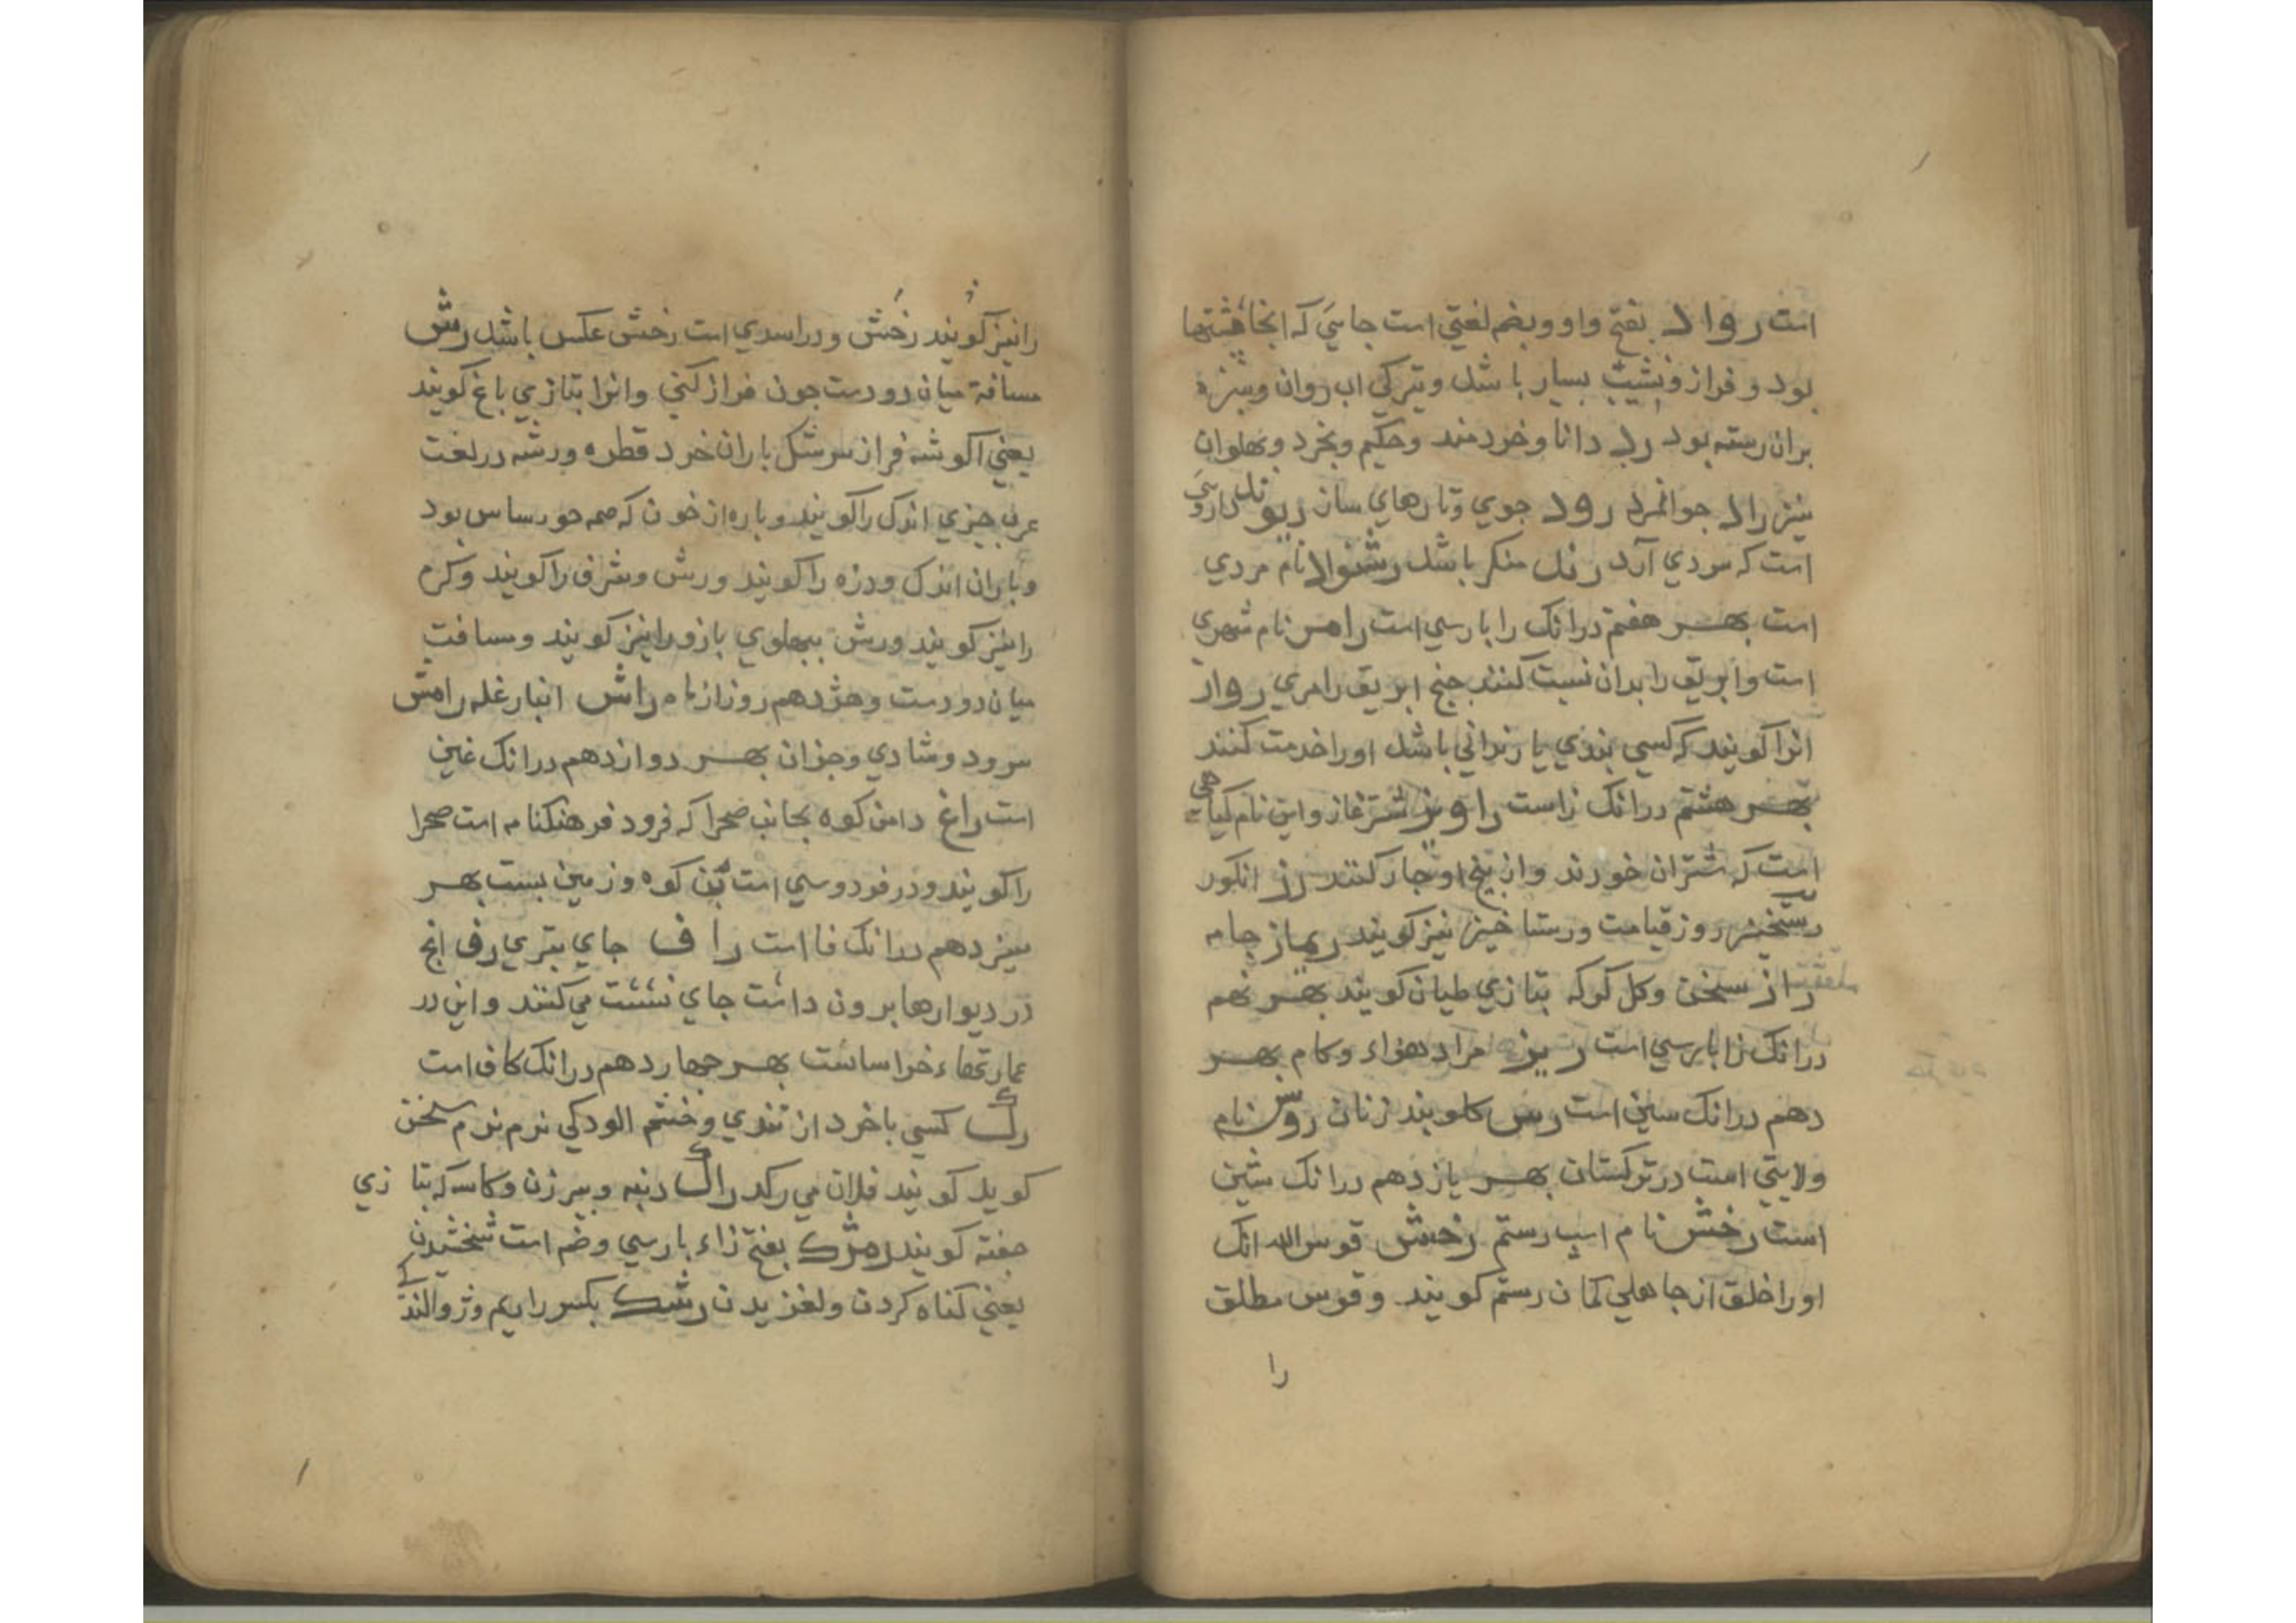 است رواد بفتح واو وبضم لغتي است جايي که انجا پشتها
بود و فراز و نشيب بسيار باشد و تبرکي اب روان و سبزه
بران رسته بود رد دانا و خردمند و حکيم و بخرد و پهلوان
نيز راد جوانمرد رود جوي و تارهاي ساز ريوند داروئي
است که سردي آرد رند منکر باشد رشنواد نام مردي
است بهر هفتم درانک را پارسي است راهر نام شهري
است و ابريق را بدان نسبت کنند جنج ابريق رامري رواز
انرا کويند که کسي بندي يا زنداني باشد اورا خدمت کنند
بهر هشتم درانک زاست راويز شترغاز و اين نام کياهي
است که شتران خورند و از بيخ او اچار کنند رز انکور
رستخيز روز قيامت و رستاخيز نيز کويند ريماز جامه
راز سخن و کل کر که بتازي طيان کويند بهر نهم
درانک زا پارسي است ريز مراد هواء و کام بهر
دهم درانک سين است رس کلوبند زنان روس نام
ولايتي است در ترکستان بهر يازدهم درانک شين
است رخش نام اسپ رستم رخش قوس الله انک
اورا خلق از جاهلي کمان رستم کويند و قوس مطلق
را
رانيز کويند رخش و در اسدي است رخش عکس باشد رش
مسافة ميان دو دست جون فراز کني و انرا بتازي باغ کويند
يعني اکوشه فراز سرشک باران خرد قطره و رشه در لغت
عرب چيزي اندک را کويند و پاره از خون که بود
و باران اندک و دزه را کويند و رش و شرف را کويند و کرم
رانيز کويند و رش بپهلوي بازو رانيز کويند و مسافت
ميان دو دست و هژدهم روز از ماه راش انبار غله رامش
سرود و شادي و جزان بهر دوازدهم درانک غين
است راغ دامن کوه بجانب صحرا که فرود فرهنکنامه است صحرا
را کويند و در فردوسي است بن کوه و زمين بست بهر
سيزدهم درانک فا است راف جاي بتري رف انج
در ديوارها برون داشت جاي نشست مي کنند و اين در
عمارتهاء خراسانست بهر جهاردهم درانک کاف است
رک کسي باخرد از تندي و خشم الودکي نرم نرم سخن
کويد کويند فلان مي رکد راک دنبه و پيرزن و کاسه که بتازي
جفنه کويند رمژک بفتح زاء پارسي و ضم است شخشيدن
يعني کناه کردن و لغزيدن رشک بکسر را يم وژوالند